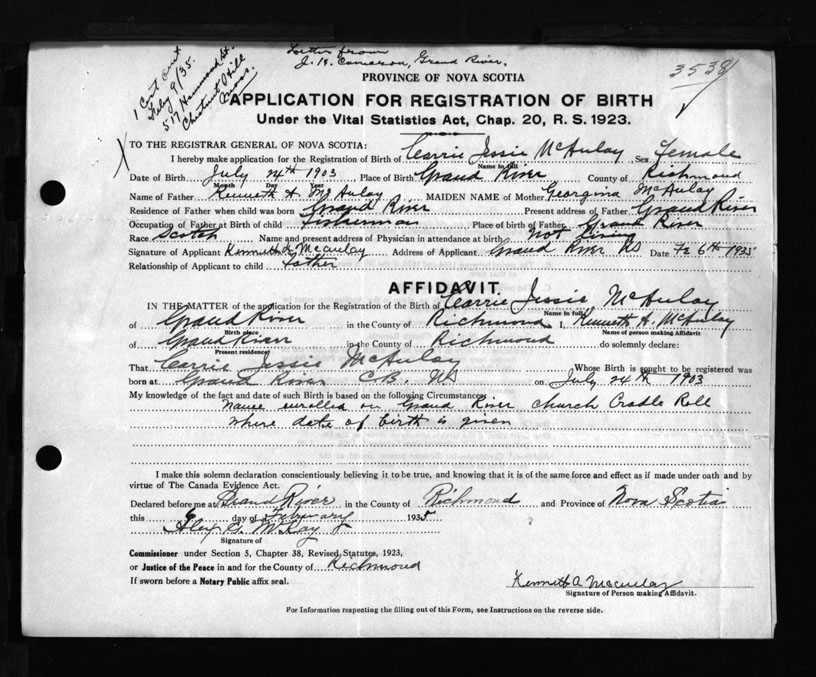 Letter from
J. H. Cameron, Grand River.
3538
1 Cert out
Feby 9/35.
517 Hammond St.
Chestnut Hill
Mass.
PROVINCE OF NOVA SCOTIA
APPLICATION FOR REGISTRATION OF BIRTH
Under the Vital Statistics Act, Chap. 20, R. S. 1923.
TO THE REGISTRAR GENERAL OF NOVA SCOTIA:
I hereby make application for the Registration of Birth of Carrie Jessie McAulay Sex Female
Name in full
Date of Birth July 24th 1903 Place of Birth Grand River County of Richmond
Month Day Year
Name of Father Kenneth A McAulay MAIDEN NAME of Mother Georgina McAulay
Residence of Father when child was born Grand River Present address of Father Grand River
Occupation of Father at Birth of child Fisherman Place of birth of Father Grand River
Race Scotch Name and present address of Physician in attendance at birth Not living
Signature of Applicant Kenneth A Mcaulay Address of Applicant Grand River NS Date Fe 6th 1935
Relationship of Applicant to child Father
AFFIDAVIT
IN THE MATTER of the application for the Registration of the Birth of Carrie Jessie McAulay
Name in full
of Grand River in the County of Richmond I, Kenneth A. McAulay
Birth place Name of person making Affidavit
of Grand River in the County of Richmond do solemnly declare:
Present residence
That Carrie Jessie McAulay Whose Birth is sought to be registered was
born at Grand River C.B. NS on July 24th 1903
My knowledge of the fact and date of such Birth is based on the following Circumstances
Name enrolled on Grand River church Cradle Roll
where date of birth is given
I make this solemn declaration conscientiously believing it to be true, and knowing that it is of the same force and effect as if made under oath and by
virtue of The Canada Evidence Act.
Declared before me at Grand River in the County of Richmond and Province of Nova Scotia
this 6 day of February 1935
Alex
Signature of
Commissioner under Section 5, Chapter 38, Revised Statutes, 1923,
or Justice of the Peace in and for the County of Richmond
If sworn before a Notary Public affix seal.
Kenneth A Mcaulay
Signature of Person making Affidavit.
For Information respecting the filling out of this Form, see Instructions on the reverse side.